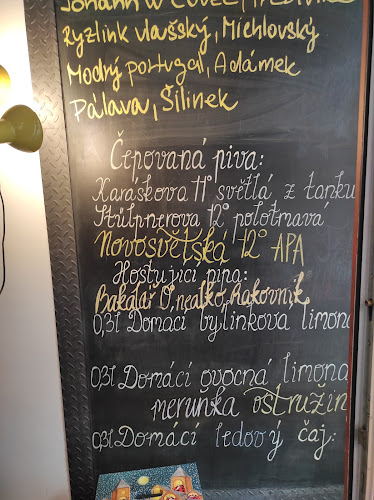 Johann W
Ryzlink vlašský, Michlovský
Modrý portugal, Adámek
Pálava, Šilinek
Čepovaná piva:
Karáskova 11° světlá z tanku
Stülpnerova 12° polotmavá
Novosvětská 12° APA
Hostující piva:
Bakalář 0°, nealko, Rakovník
0,3l Domácí bylinková limoná
0,3l Domácí ovocná limona
meruňka ostružin
0,3l Domácí ledový čaj: